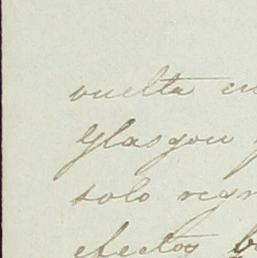 vuelta en
Glasgow
solo regr
efectos